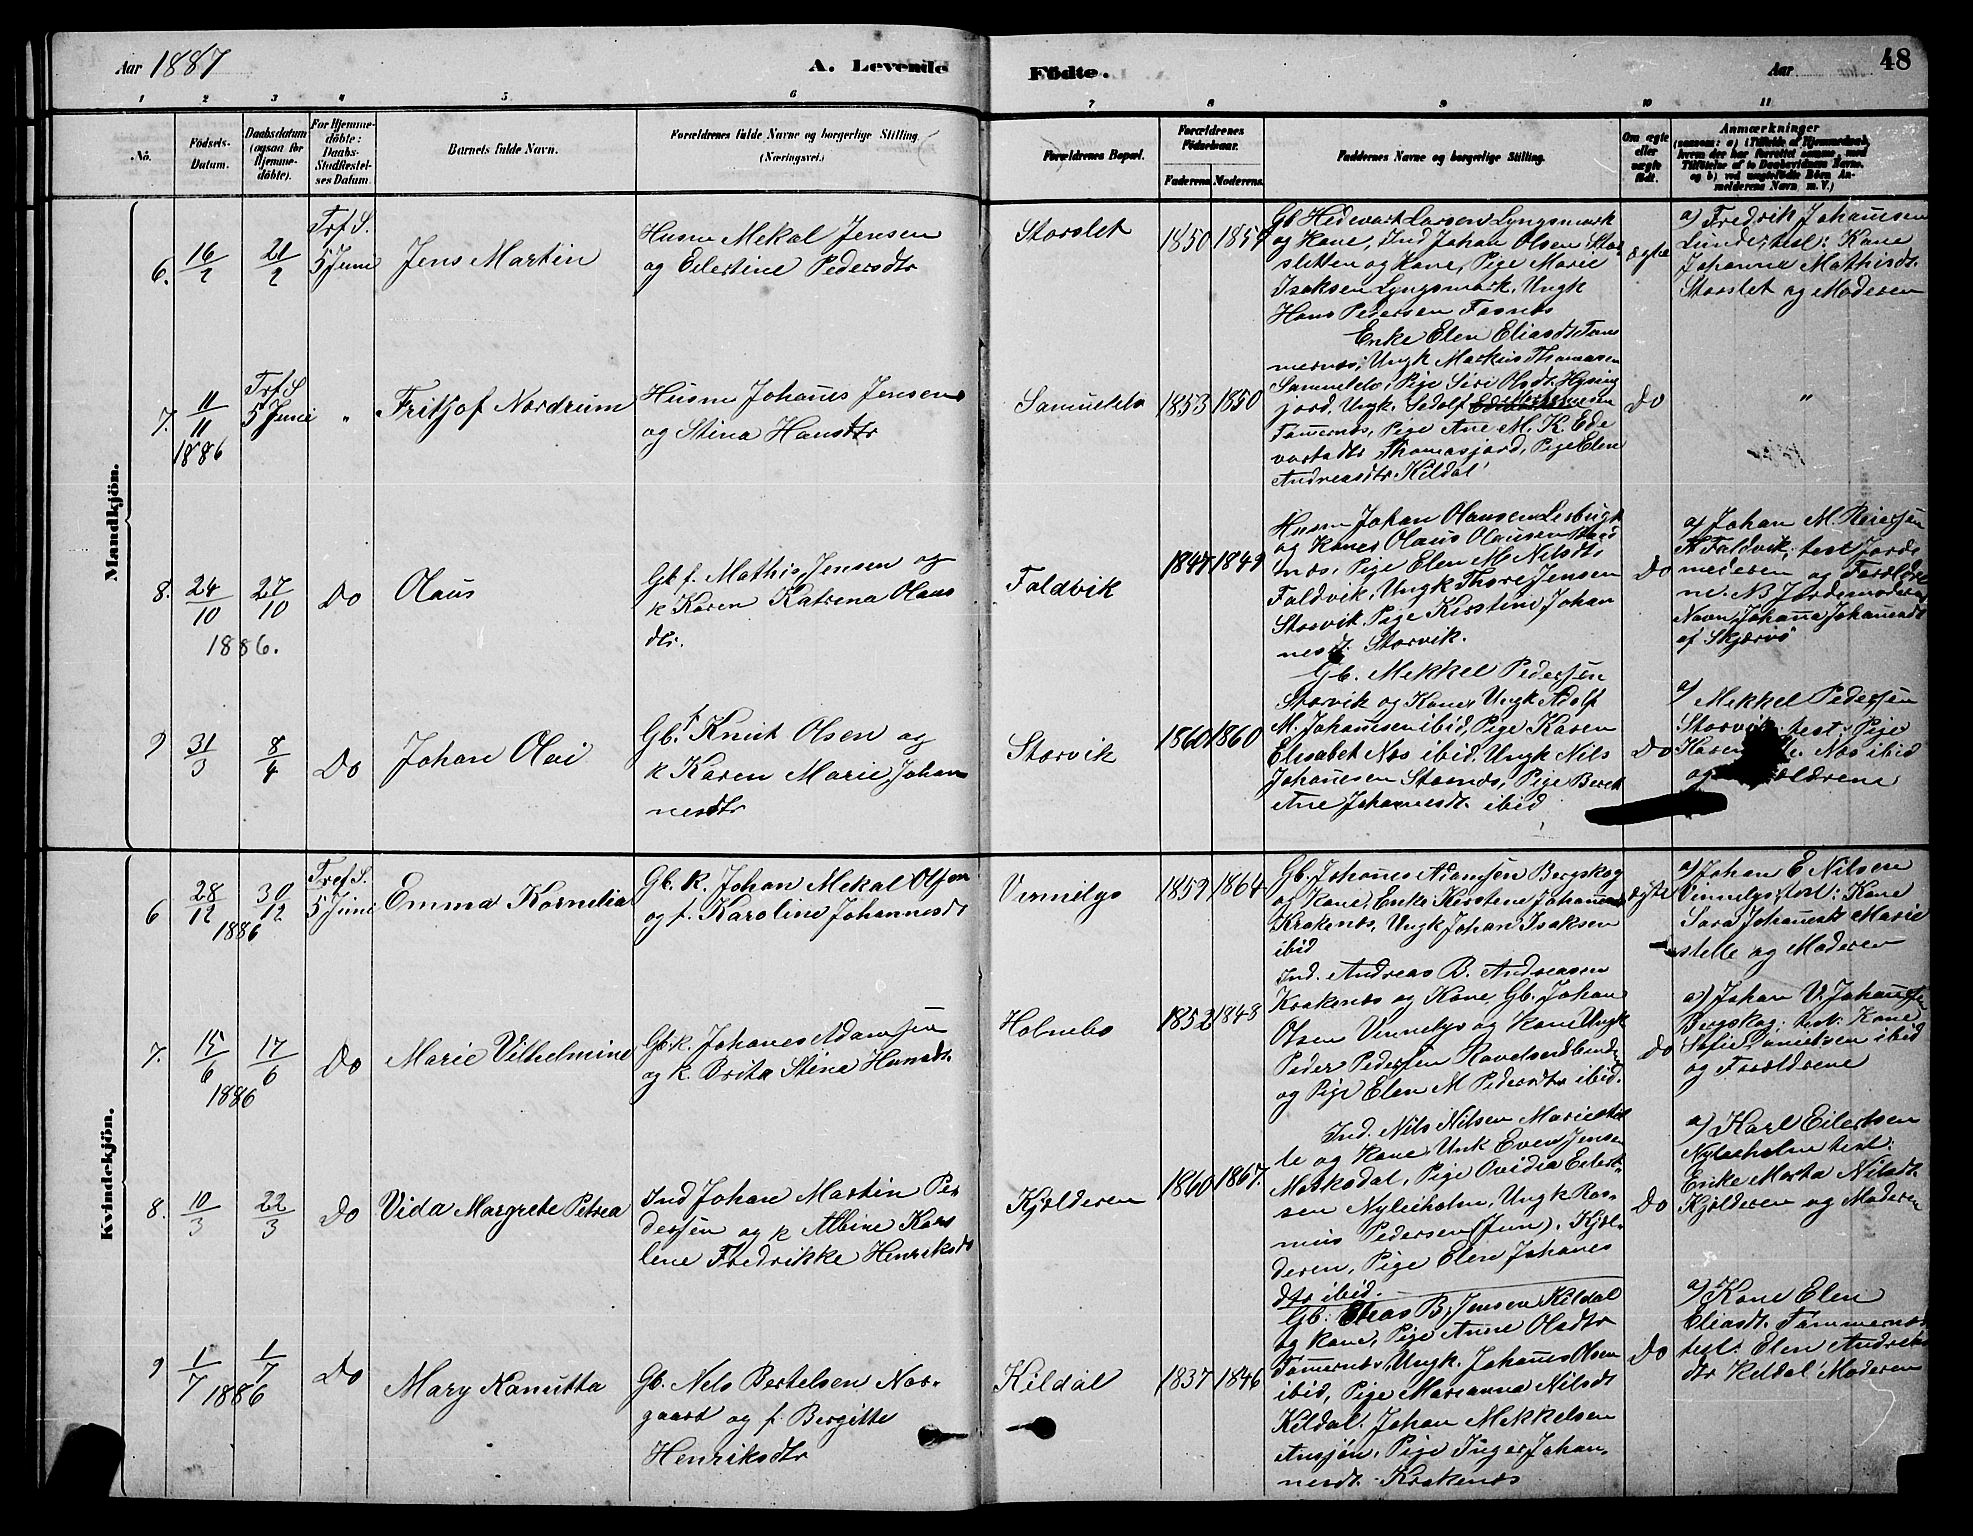 Aar 1887
A. Levende
Födte.
Aar
48
1
2
3
4
5
6
7
8
9
10
11
No.
Födsels-
Datum.
Daabsdatum
(ogsaa for
Hjemme-
döbte).
For Hjemme-
döbte:
Daabs-
Stadfæstel-
ses Datum.
Barnets fulde Navn.
Forældrenes fulde Navne og borgerlige Stilling.
(Næringsvei.)
Forældrenes Bopæl.
Forældrenes
Födselsaar.
Faderens.
Moderens.
Faddernes Navne og borgerlige Stilling.
Om ægte
eller
uægte
födt.
Anmærkninger
(saasom: a) i Tilfælde af Hjemmedaab,
hvem der har forrettet samme, med
Tilföielse af to Daabsvidners Navne.
og b) ved uægtefödte Börn An-
melderens Navn m. V.)
Mandkjön.
6.
16/2
21/2
Trf. S.
5 Juni
Jens Martin
Husm Mekal Jensen
og Eilertine Pedersdtr
Storslet
1850
1859
Gb. Hedevart Larsen Lyngsmark
og Kone, Ind Johan Olsen Stor
sletten og Kone, Pige Marie
Isaksen Lyngsmark, Ungk
Hans Pedersen
ægte
a) Fredrik Johannesen
test: Kone
Johanna Mathisdt.
Storslet og Moderen
7.
11/11
1886
Trf. S
5 Juni
"
Fritjof Nordrum
Husm Johanes Jensen
og Stina Hansdtr
Samuelelv
1853
1850
Enke Elen Eliasdt Tøm
mernæs, Ungk Markus Thomasen
Samuelelv, Pige Siri Olsdt.
Ungk.
Tømernes, Pige Ane M. K. Ede
vartsdtr Thomasjord, Pige Elen
Andreasdtr Kildal
Do
"
8.
24/10
1886.
27/10
Do
Olaus
Gb. f. Mathis Jensen og
k Karen Katrina Olaus
dtr.
Faldvik
1847
1849
Husm Johan Olausen
og Kone, Olaus Olausen
næs, Pige Elen M Nilsdt
Faldvik, Ungk Thore Jensen
Storvik Pige Kirstine Johan
nesdt. Storvik.
Do
a) Johan M. Reiersen
Faldvik, test. Jorde
moderen og Forældre
ne. NB Jordemoderens
Navn, Johana Johannesdt
af Skjærvø
9
31/3
8/4
Do
Johan Olai
Gb. f Knut Olsen og
k Karen Marie Johan
nesdtr
Storvik
1860
1860
Gb. Mekkel Pedersen
Storvik og Kone, Ungk Adolf
M. Johannesen ibid, Pige Karen
Elisabet Nos ibid, Ungk Nils
Johannesen Stornes, Pige Beret
Ane Johannesdt. ibid
Do
a) Mekkel Pedersen
Storvik test: Pige
Karen Nos ibid
og Forældrene
Kvindekjön.
6
28/12
30/12
1886
Tref. S.
5 Juni
Emma Kornelia
Gb. k. Johan Mekal Olsen
og f. Karoline Johannesdt
Vinnelys
1859
1864
Gb. Johanes Adamsen Bergskog
og Kone, Enke Kirstene Johannes
Krakenes, Ungk Johan Isaksen
ibid
ægte
a) Johan E Nilsen
Vinnelys, test: Kone
Sara Johannesdt Marie
stelle og Moderen
7.
15/6
17/6
1886
Do
Marie Vilhelmine
Gb. k. Johanes Adamsen
og k. Brita Stina Hansdt.
Holmebo
1852
1848
Ind. Andreas B. Andreasen
Krakenes og Kone, Gb. Johan
Olsen Vinnelys og Kone Ungk
Peder Pedersen
og Pige Elen M Pedersdtr ibid.
Do
a) Johan V. Johannesen
Bergskog, test. Kone
Sofie ibid
og Forældrene
8.
10/3
22/3
Do
Vida Margrete Petrea
Ind Johan Martin Pe
dersen og k Albine Karo
lene Fredrikke Henriksdt
Kjølderen
1860
1867.
Ind. Nils Nilsen Mariestel
le og Kone Unk Even Jensen
Morkedal, Pige Ovidia Eilert-
sen Nyleiholm, Ungk Ras-
mus Pedersen (Jun). Kjøl-
deren, Pige Elen Johanes
dtr ibid.
Do
a) Karl Eilertsen
Nyleiholm test:
Enke Marta Nilsdt.
Kjølderen og Moderen
9
1/7
1/7
1886
Do
Mary Kanutta
Gb. Nels Bertelsen Nor-
gaard og f. Bergitte
Henriksdtr
Kildal
1837
1846
Gb. Elias B. Jensen Kildal
og Kone, Pige Anne Olsdtr
Tømernes, Ungk. Johanes Olsen
ibid, Pige Marianna Nilsdt
Kildal. Johan Mekkelsen
Ansjøn, Pige Inger Johan
nesdt. Krakenes
Do
a) Kone Elen
Eliasdt. Tømmernes
test. Elen Andreas
dtr Kildal Moderen